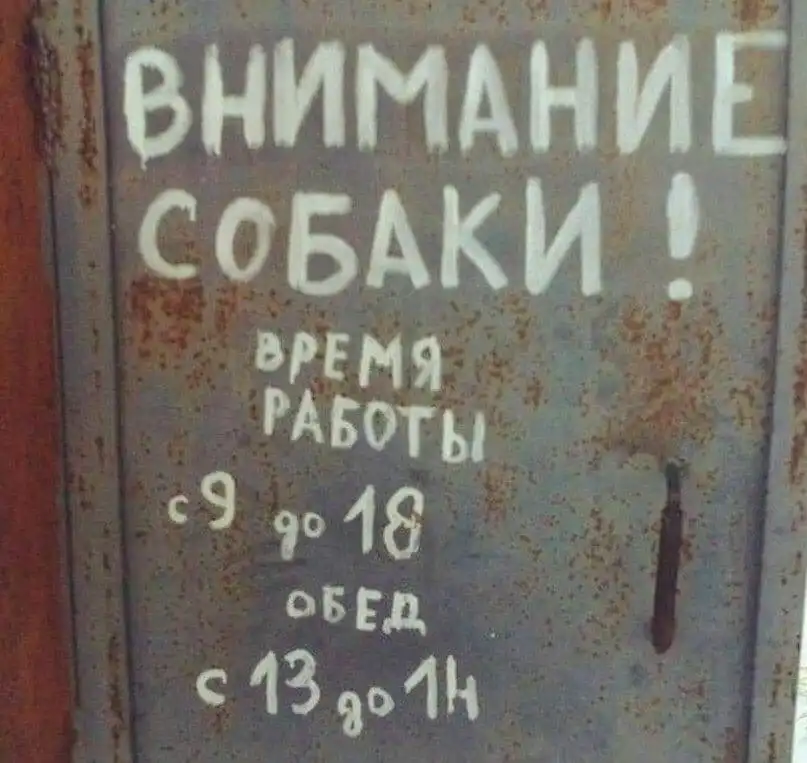 ВНИМАНИЕ
СОБАКИ!
ВРЕМЯ
РАБОТЫ
с 9 до 18
ОБЕД
с 13 до 14